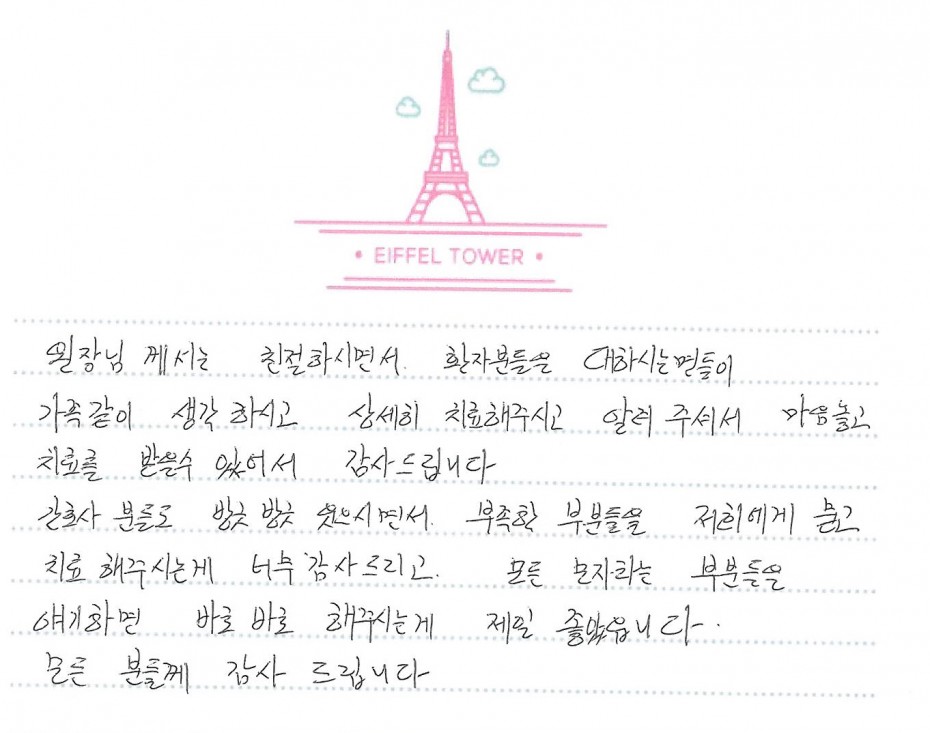 • EIFFEL TOWER •
원장님 께서는 친절하시면서. 환자분들은 대하시는면들이
가족같이 생각 하시고 상세히 치료해주시고 알려 주셔서 마음놓고
치료를 받을수 있어서 감사드립니다
간호사 분들도 방긋 방긋 웃으시면서. 부족한 부분들을 저희에게 묻고
치료 해주시는게 너무 감사드리고. 모든 모자라는 부분들을
얘기하면 바로 바로 해주시는게 제일 좋았읍니다.
모든 분들께 감사 드립니다